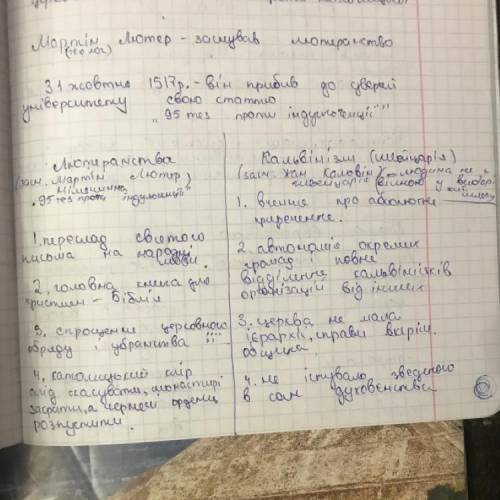 Мартін Лютер - заснував лютеранство
(теолог)
31 жовтня 1517р. - він прибив до дверей
університету свою статтю
"95 тез проти індульгенції"
Лютеранства
(засн. Мартін Лютер)
Німеччина
"95 тез проти індульгенції"
1. переклад святого
письма на народні
мови.
2. головна книга для
християн - Біблія
3. спрощення церковного
обряду і убранства
4. католицький клір
слід скасувати, монастирі
закрити, а чернечі ордени
розпустити.
Кальвінізм (швейцарія)
(засн. Жан Кальвін) людина не є
швейцарія вільною у виборі
1. вчення про абсолютне
приречення.
2. автономія окремих
громад і повне
відділення кальвіністків
організацій від інших
3. церква не мала
ієрархії, справи вирім.
община.
4. не існувало зведеного
в сан духовенства